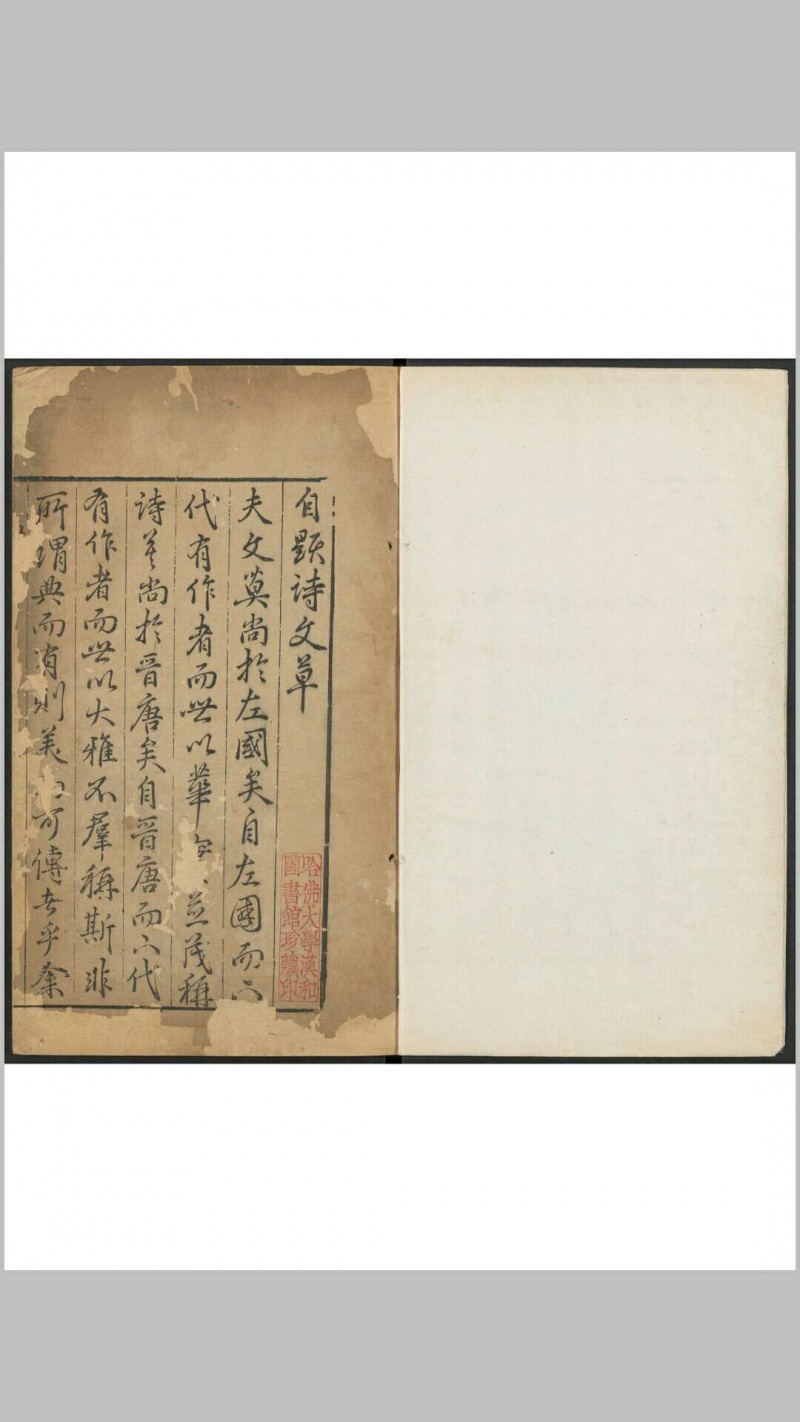 自題詩文草
夫文莫尚於左國矣自左國而下
代有作者而世以華 並茂稱
詩莫尚於晉唐矣自晉唐而下代
有作者而世以大雅不羣稱斯非
所謂典而有則美 可傳者乎余
哈佛大學漢和
圖書館珍藏印